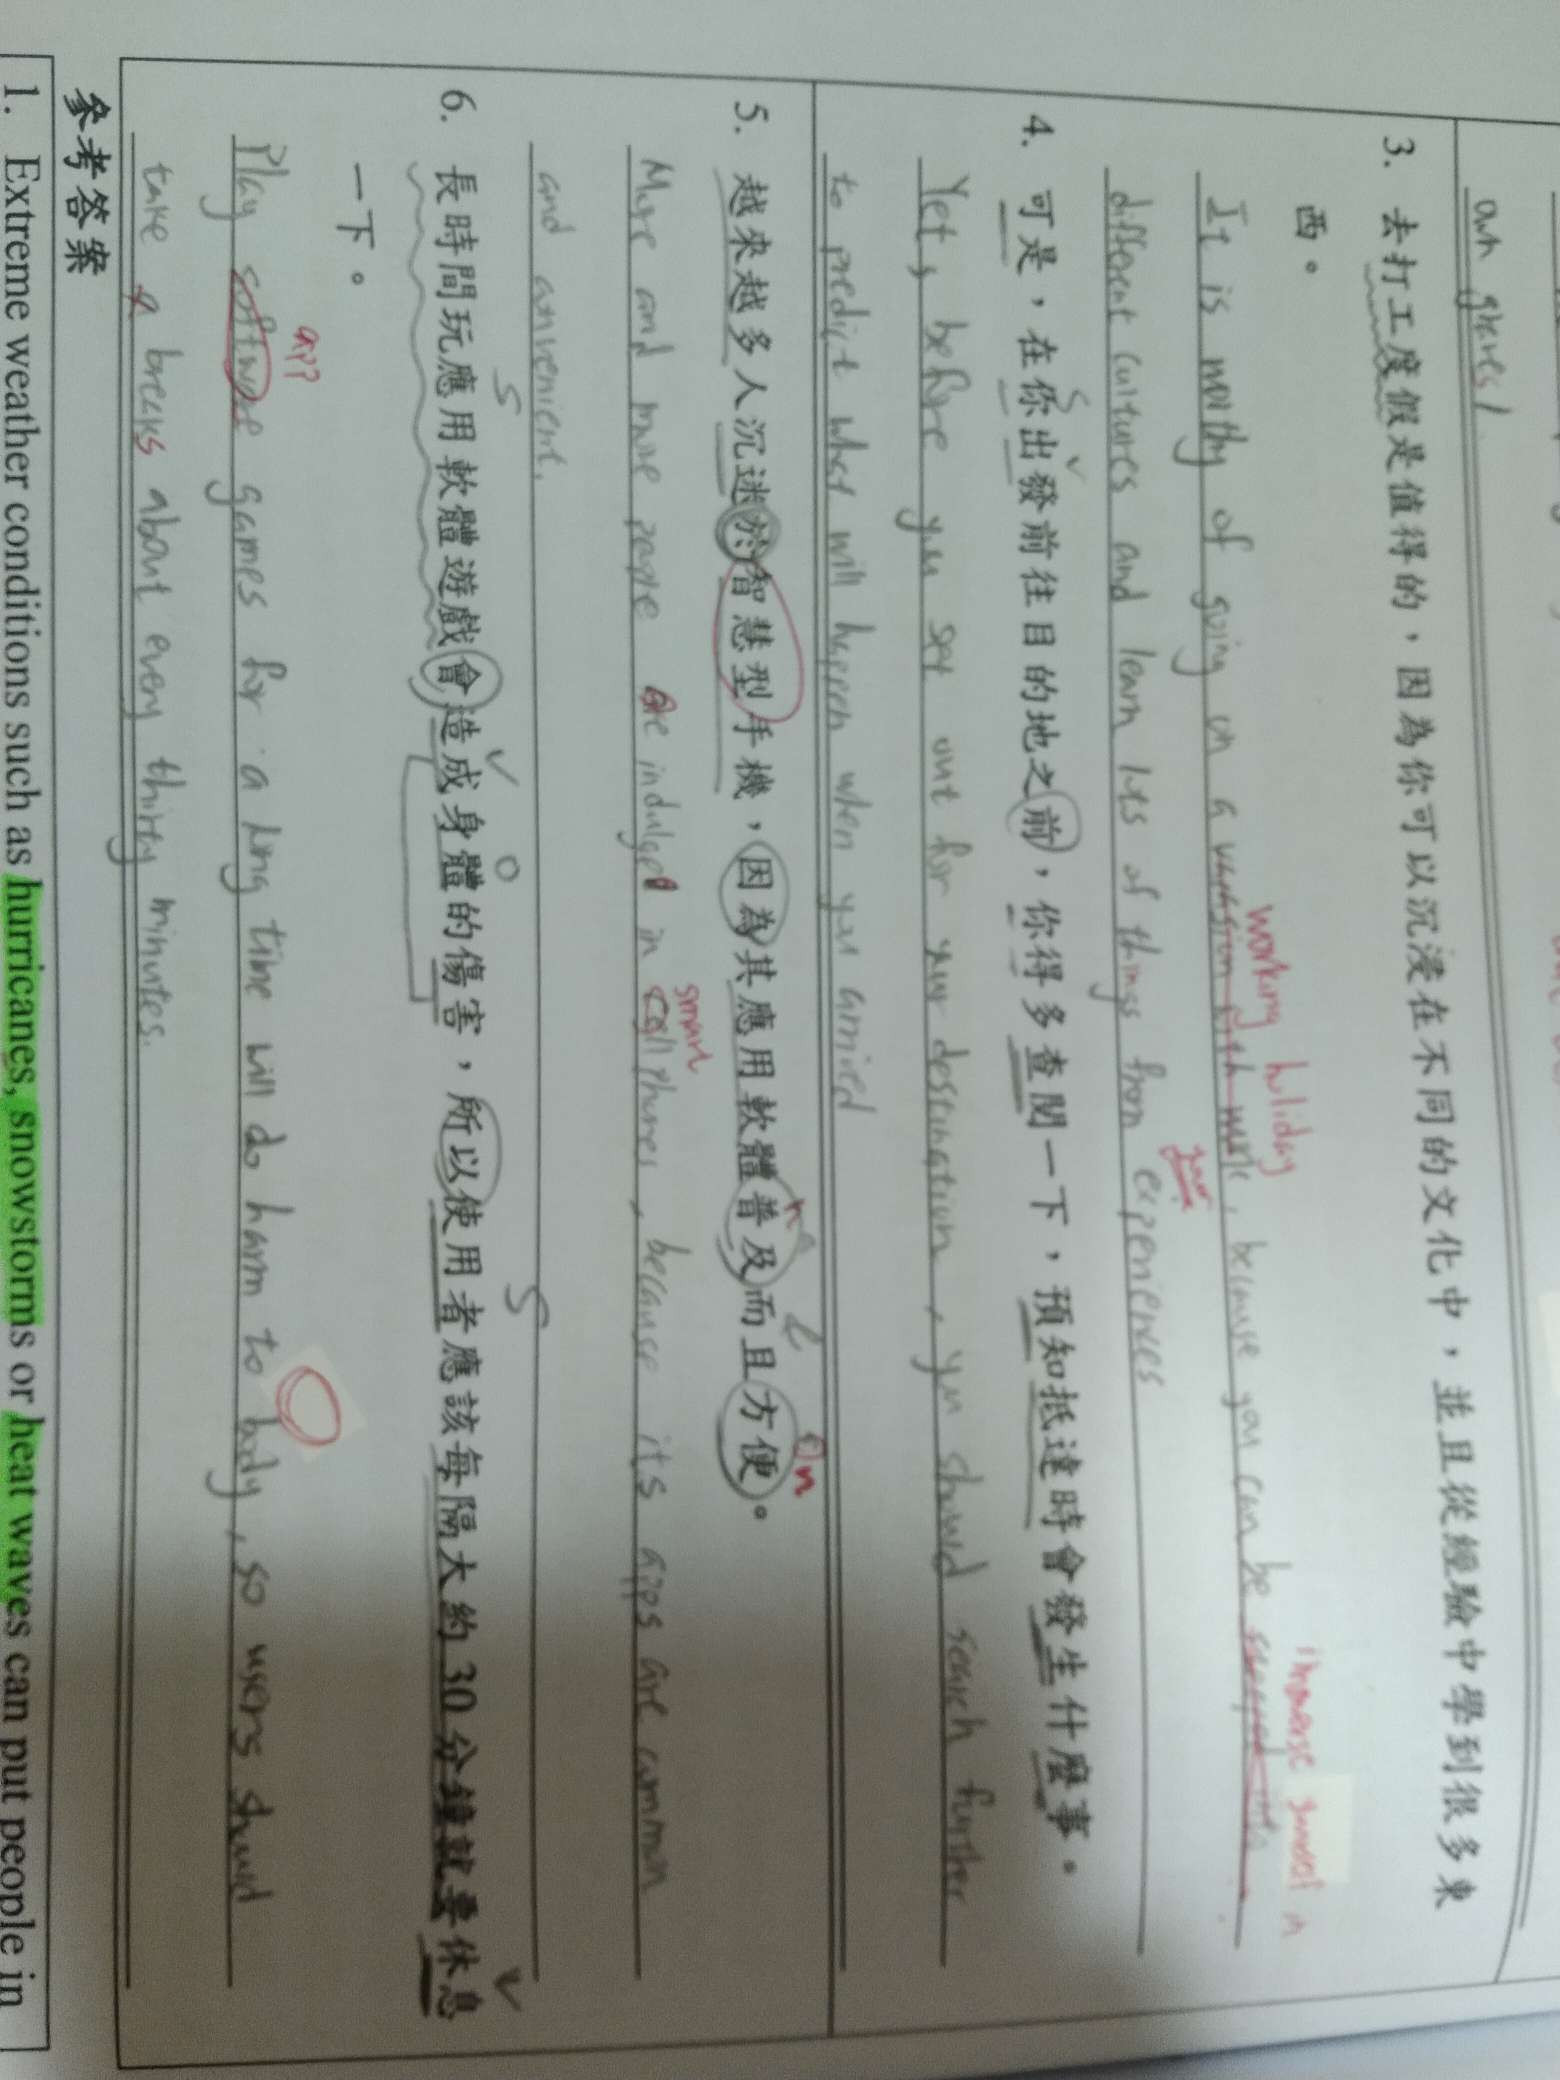 own
3. 去打工度假是值得的，因為你可以沉浸在不同的文化中，並且從經驗中學到很多東
西。
working holiday
immerse yourself in
It is worthy of going on a with work, because you can be
your
different cultures and learn lots of things from experiences
4. 可是，在你出發前往目的地之前，你得多查閱一下，預知抵達時會發生什麼事。
S V
Yet, before you set out for your destination, you should search further
to predict what will happen when you arrived
5. 越來越多人沉迷於智慧型手機，因為其應用軟體普及而且方便。
smart
More and more people are indulged in cell phones, because it's apps are common
and convenient.
S V O S V
6. 長時間玩應用軟體遊戲會造成身體的傷害，所以使用者應該每隔大約30分鐘就要休息
一下。
app
Play software games for a long time will do harm to body, so users should
take a breaks about every thirty minutes.
參考答案
1. Extreme weather conditions such as hurricanes, snowstorms or heat waves can put people in